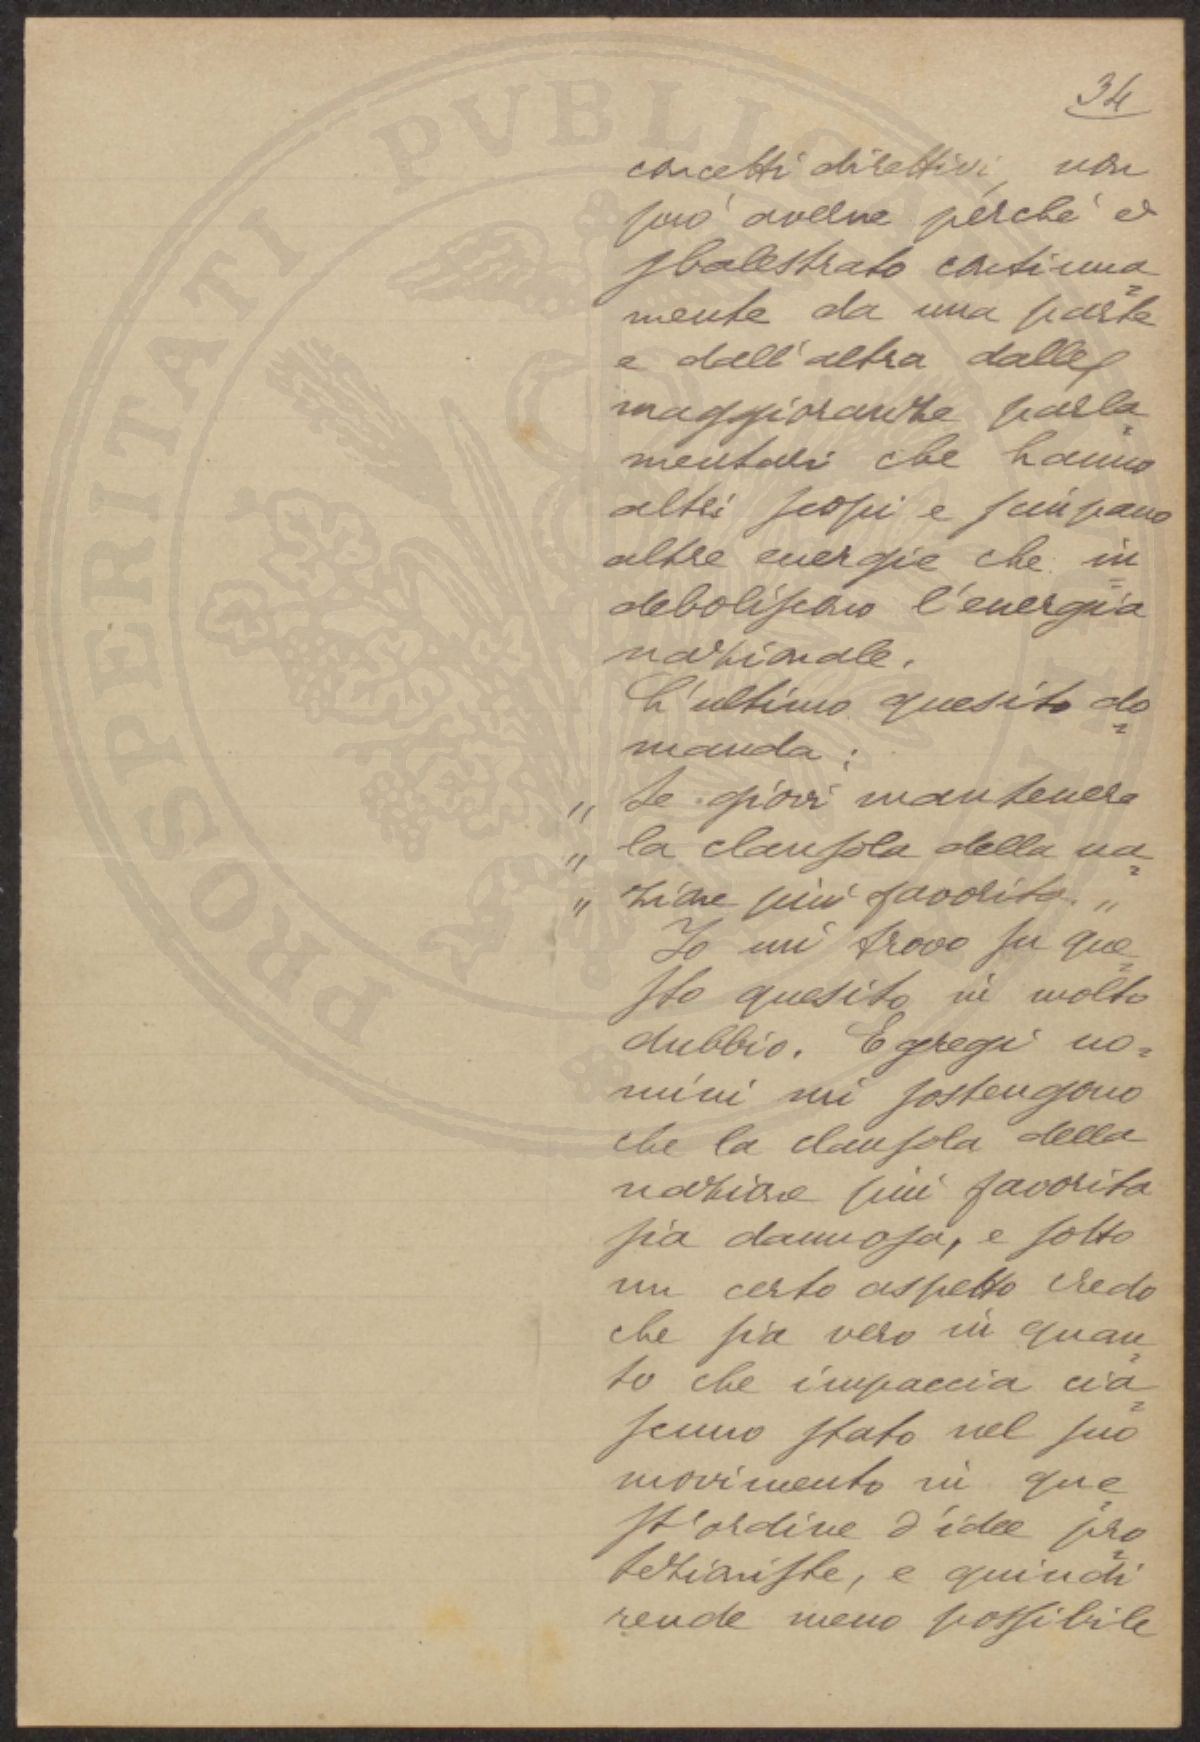 34
concetti direttivi, non
può averne perché è
sbalestrato continua=
mente da una parte
e dall'altra dalle
maggioranze parla=
mentari che hanno
altri scopi e sciupano
altre energie che in=
deboliscono l'energia
nazionale.
L'ultimo quesito do=
manda:
" Se giovi mantenere
" la clausola della na=
" zione più favorita. "
Io mi trovo su que=
sto quesito in molto
dubbio. Egregi uo=
mini mi sostengono
che la clausola della
nazione più favorita
sia dannosa, e sotto
un certo aspetto credo
che sia vero in quan=
to che impaccia cia=
scuno stato nel suo
movimento in que=
st'ordine d'idee pro=
tezioniste, e quindi
rende meno possibile
PROSPERITATI PVBLICAE